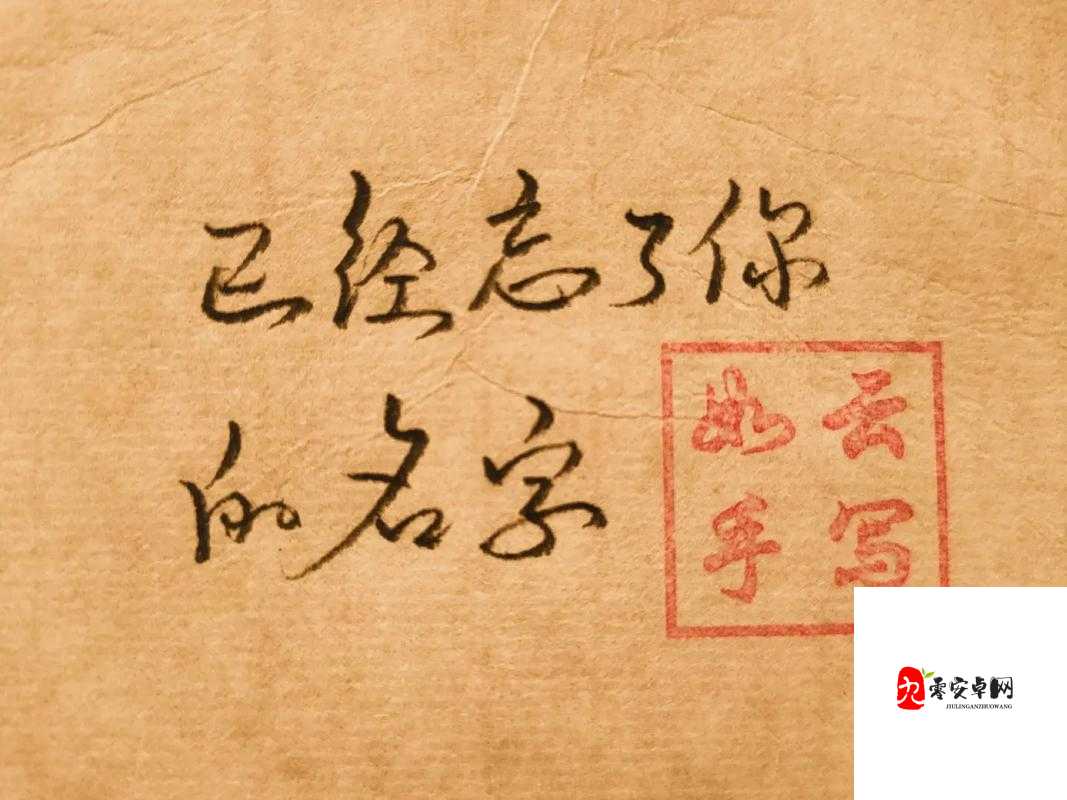 已经忘了你
的名字
如云
手写
九零安卓网
JIULINGANZHUOWANG